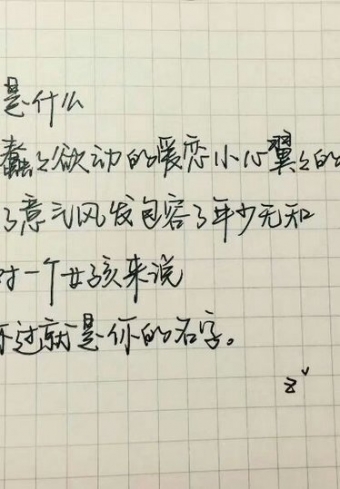 是什么
蠢々欲动的暖恋小心翼々的
了意气风发包容了年少无知
对一个女孩来说
不过就是你的名字。
z